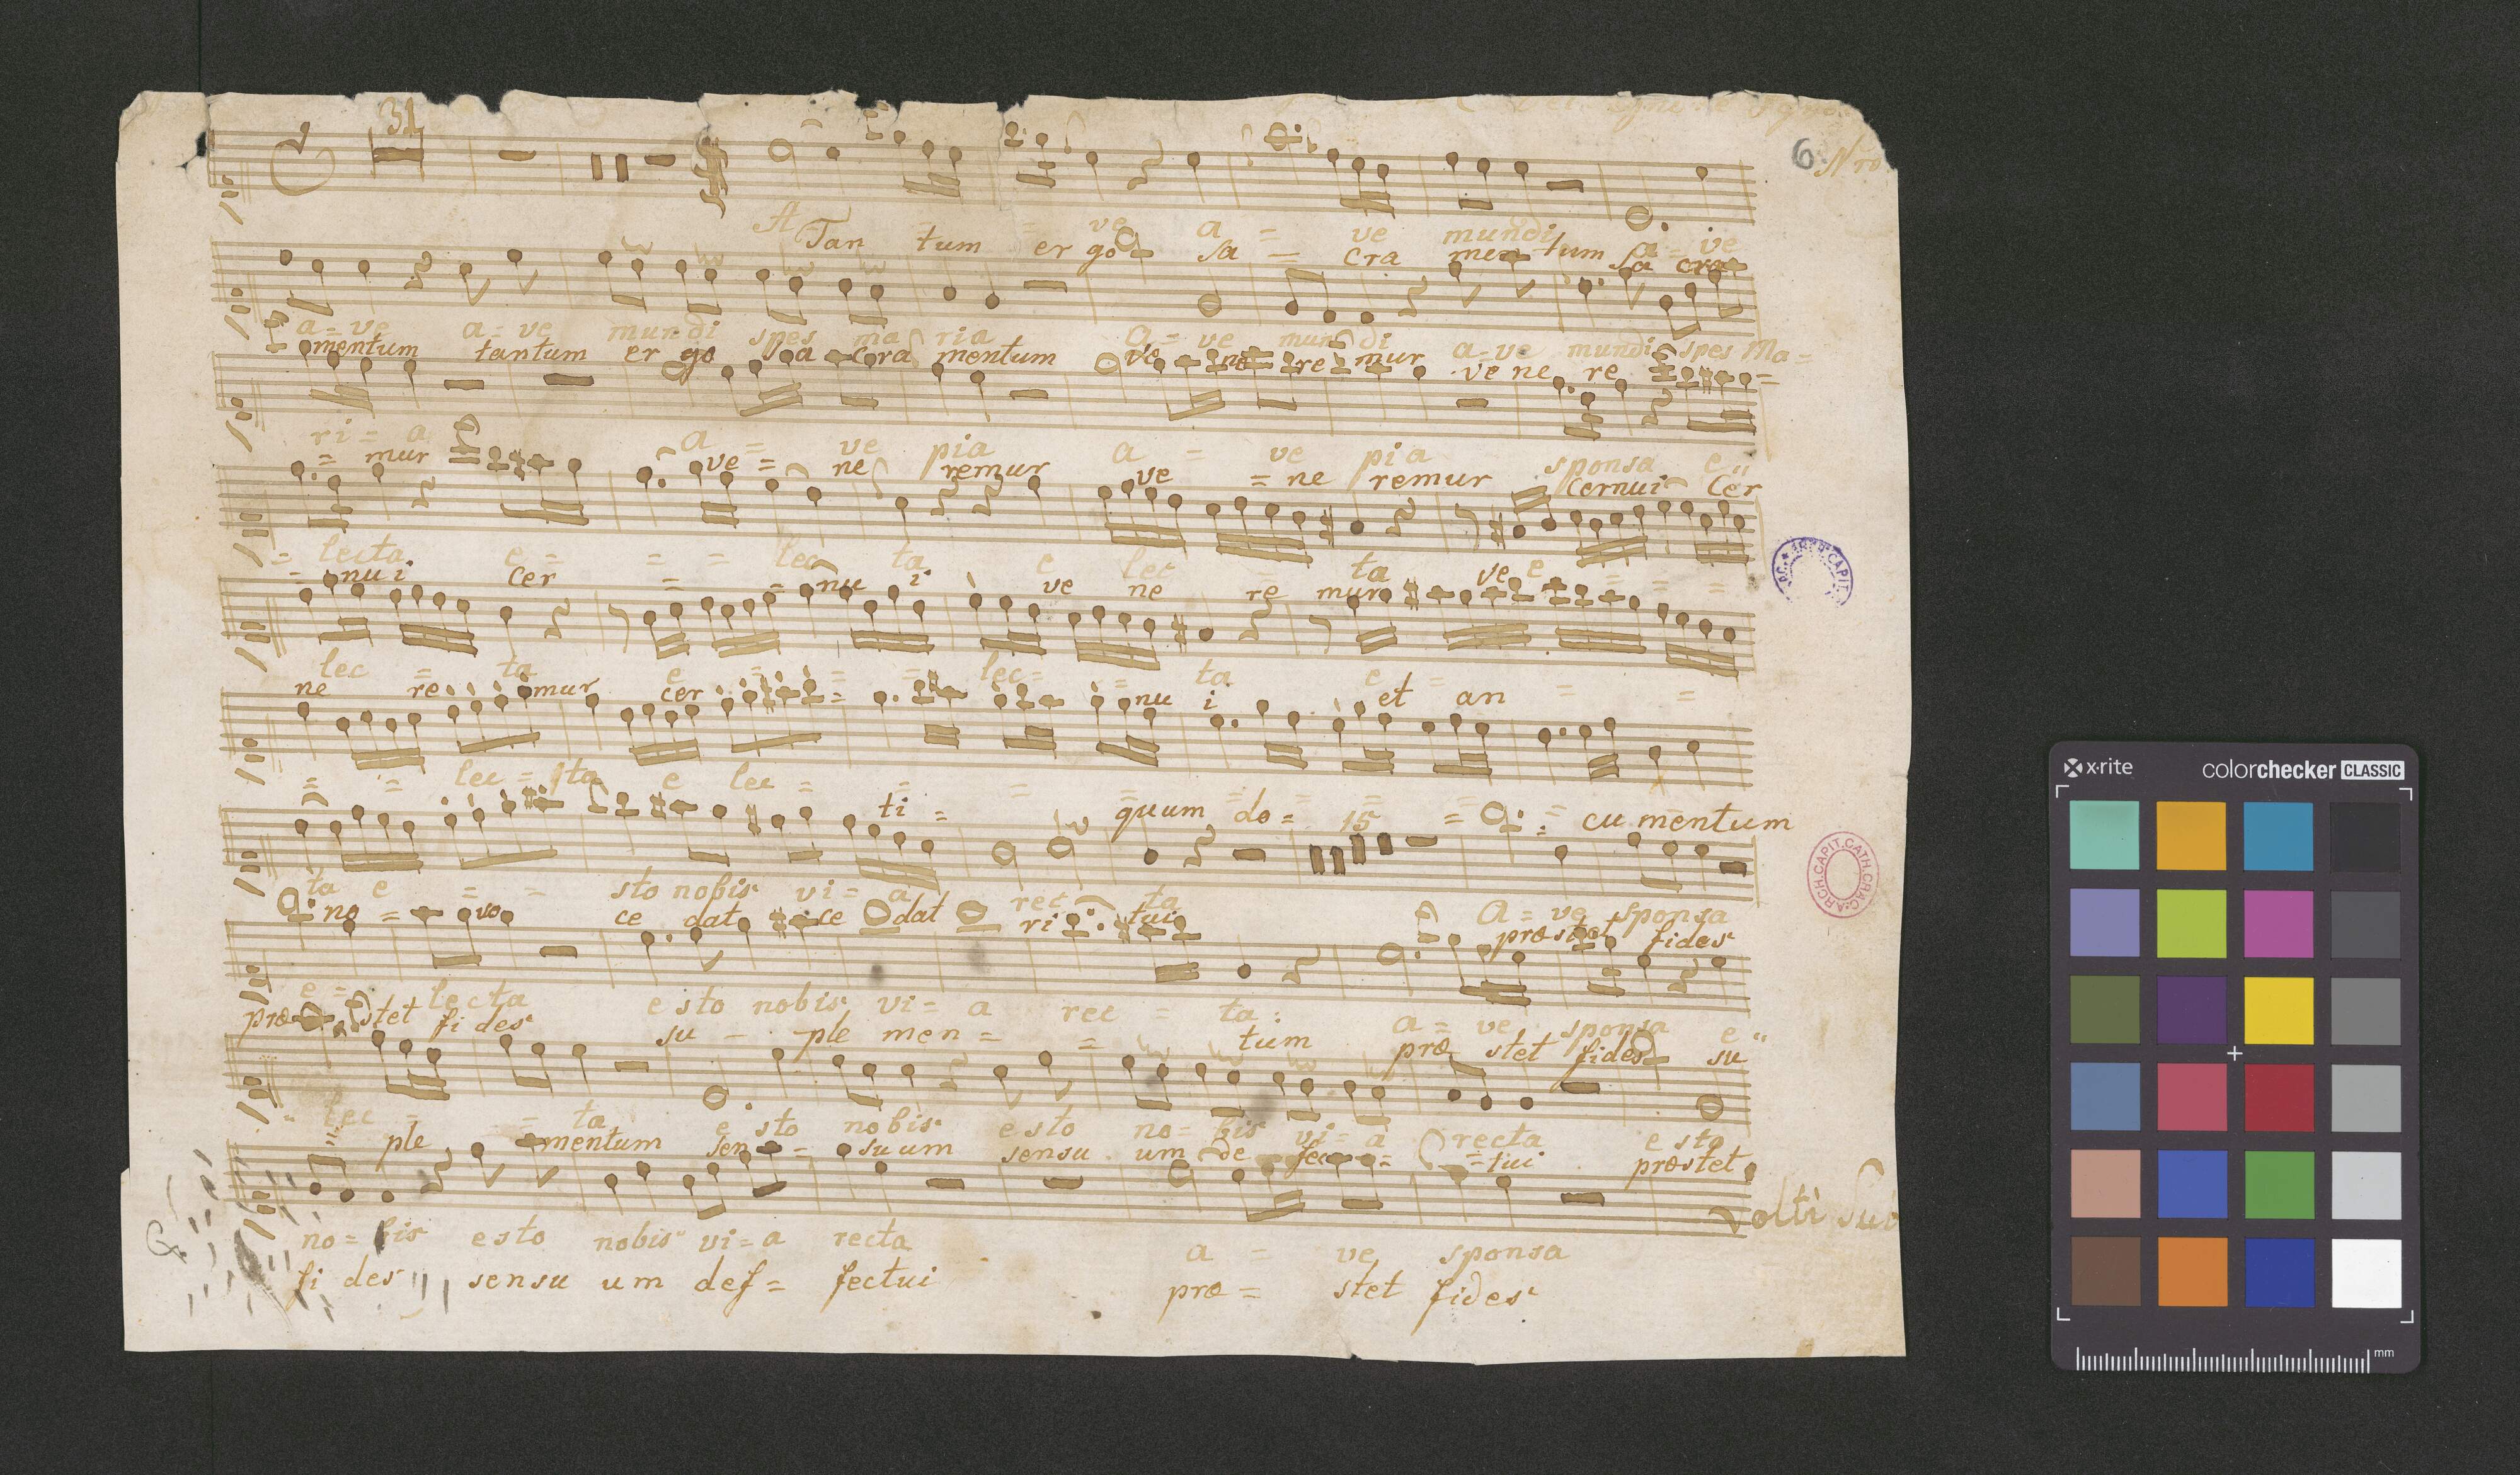 31
6. Nro
A = ve a = ve mundi a = ve
Tan tum er go Sa = cra mentum Sa cra
a = ve a = ve mundi spes ma ria a = ve mundi a = ve mundi spes Ma =
mentum tantum er go Sa cra mentum ve ne re mur ve ne re =
ri = a a = ve pia a = ve pia sponsa e"
= mur ve = ne remur ve = ne remur cernui cer
= lecta e = = = lec ta e lec = ta e = = =
= nui cer = = nu i ve ne re mur ve
lec = ta e = = = lec = = ta e = = =
ne re mur cer = nu i et an
= = lec = ta e lec = = = = = = = =
ti = quum do = 15 cu mentum
ta e = = sto nobis vi = a rec ta A = ve sponsa
no = vo ce dat ce dat ri tui præstet fides
e = lecta e sto nobis vi = a rec = ta : a = ve sponsa e"
præ stet fi des su - ple men = = tum præ stet fides su
" lec = = ta e sto nobis e sto no = bis vi = a recta e sto
ple mentum sen = suum sensu um de fec = = tui præstet
no = bis e sto nobis vi = a recta a = ve sponsa
fi des sensu um def = fectui præ = stet fides
Volti Sub
ARCH.CAPIT.CATH.CRAC.
x·rite colorchecker CLASSIC
mm